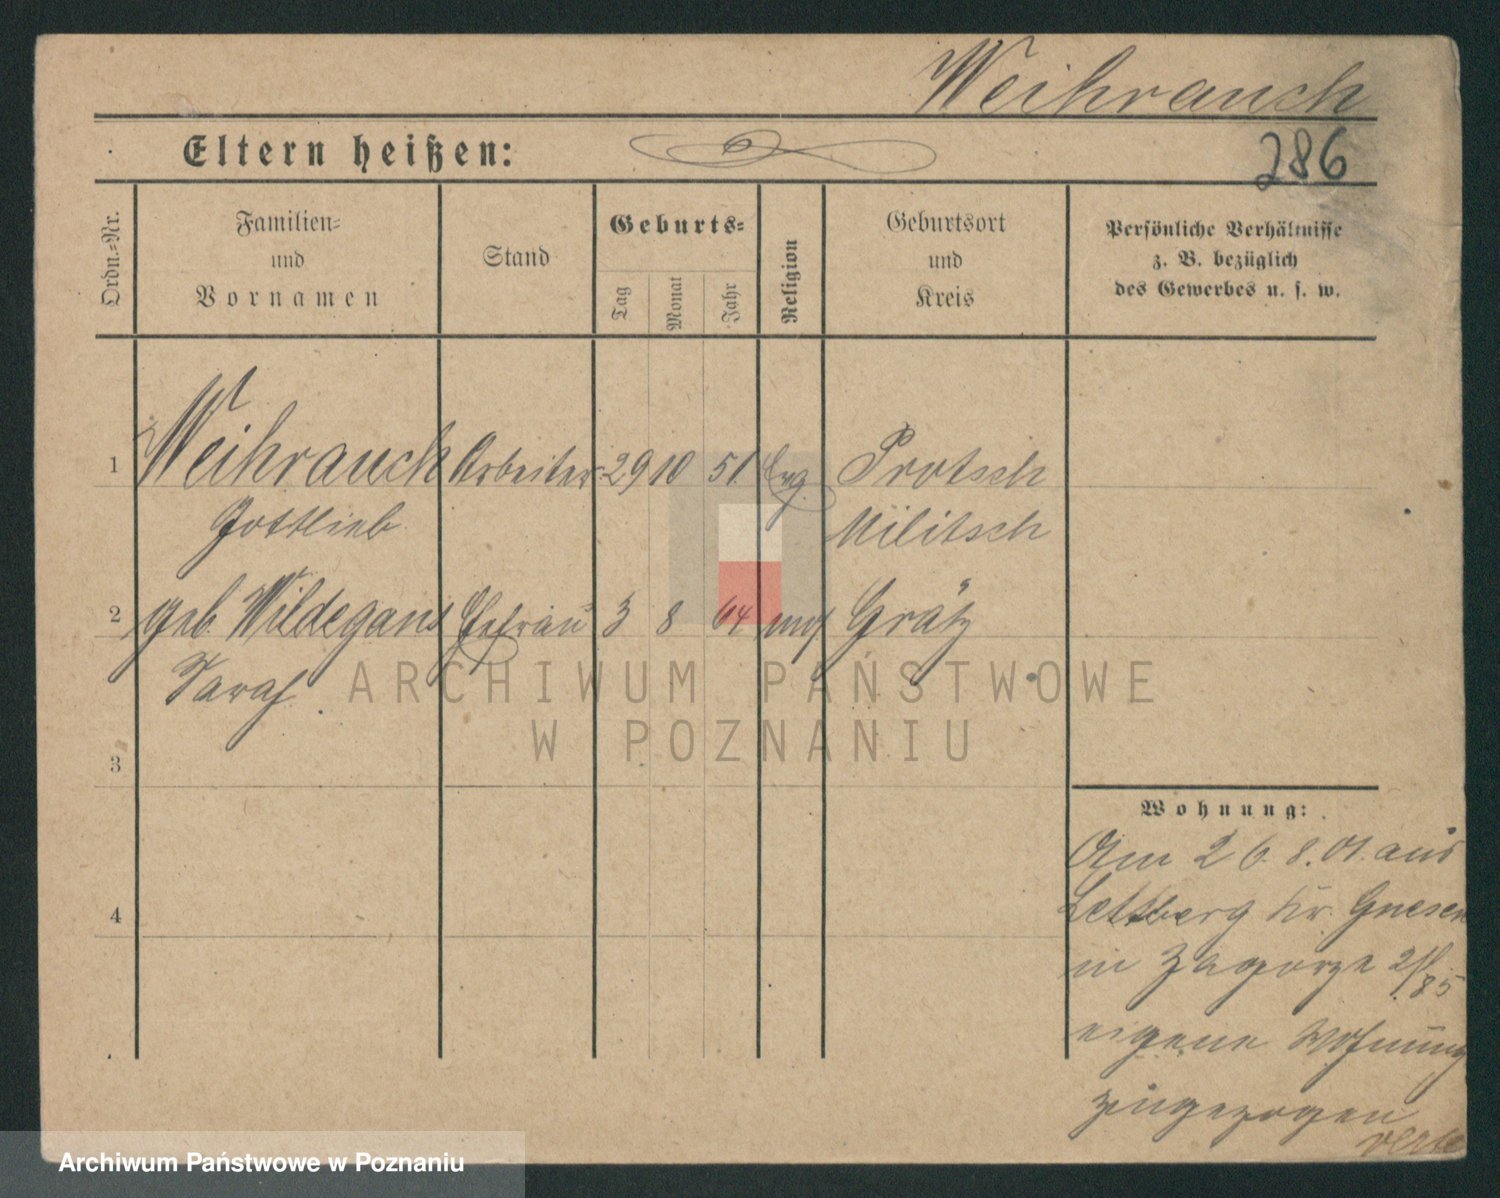 Weihrauch
286
Eltern heißen:
Ordn.-Nr.
Familien-
und
Vornamen
Stand
Geburts-
Tag
Monat
Jahr
Religion
Geburtsort
und
Kreis
Persönliche Verhältnisse
z. B. bezüglich
des Gewerbes u. s. w.
1 Weihrauch Arbeiter 29 10 51 Evg. Protsch
Gottlieb Militsch
2 geb. Wildegans Ehefrau 3 8 64 Grätz
Sarah
3
4
Wohnung:
Am 26.8.01. aus
Lettberg Kr. Gnesen
in Zagorze
eigene Wohnung
zugezogen
ARCHIWUM PAŃSTWOWE
W POZNANIU
Archiwum Państwowe w Poznaniu